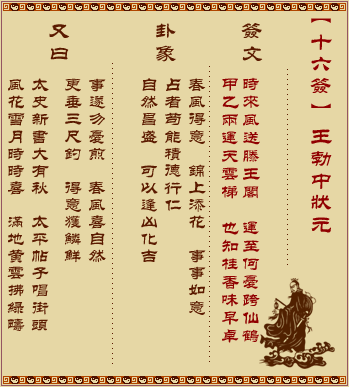 【十六簽】 王勃中狀元
簽文
時來風送滕王閣 運至何憂跨仙鶴
甲乙兩運天雲梯 也知桂香味早卓
卦象
春風得意 錦上添花 事事如意
占者苟能積德行仁
自然昌盛 可以逢凶化吉
又曰
事遂勿憂煎 春風喜自然
更垂三尺釣 得意獲鱗鮮
太史新書大有秋 太平帖子唱街頭
風花雪月時時喜 滿地黃雲拂綠疇